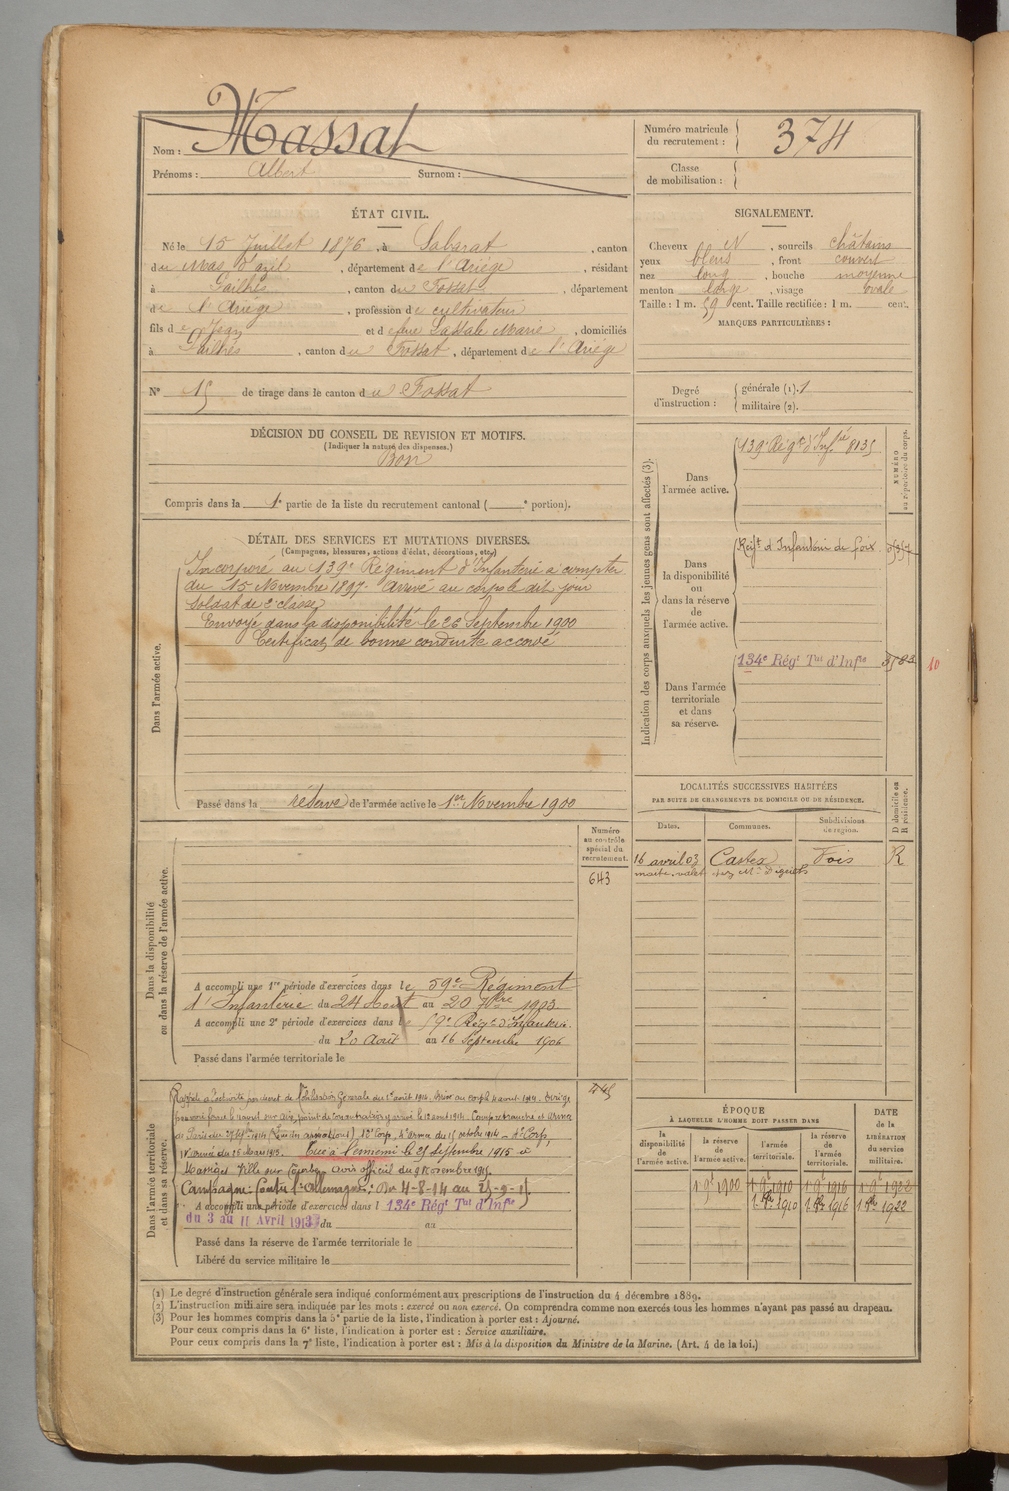 Nom : Massat
Prénoms : Albert Surnom :
Numéro matricule du recrutement : 374
Classe de mobilisation :
ÉTAT CIVIL.
Né le 15 Juillet 1876, à Sabarat, canton
du Mas d'azil, département de l'Ariège, résidant
à Pailhès, canton du Fossat, département
de l'Ariège, profession de cultivateur
fils de Jean et de feue Lassale Marie, domiciliés
à Pailhès, canton du Fossat, département de l'Ariège
SIGNALEMENT.
Cheveux N, sourcils châtains
yeux bleus, front couvert
nez long, bouche moyenne
menton large, visage ovale
Taille : 1 m. 59 cent. Taille rectifiée : 1 m. cent.
MARQUES PARTICULIÈRES :
N° 15 de tirage dans le canton du Fossat
Degré d'instruction : générale (1). 1
militaire (2).
DÉCISION DU CONSEIL DE REVISION ET MOTIFS.
(Indiquer la nature des dispenses.)
Bon
Compris dans la 1e partie de la liste du recrutement cantonal ( e portion).
DÉTAIL DES SERVICES ET MUTATIONS DIVERSES.
(Campagnes, blessures, actions d'éclat, décorations, etc.)
Dans l'armée active.
Incorporé au 139e Régiment d'Infanterie à compter
du 15 Novembre 1897. Arrivé au corps le dit jour
soldat de 2e classe
Envoyé dans la disponibilité le 26 Septembre 1900
Certificat de bonne conduite accordé
Passé dans la réserve de l'armée active le 1er Novembre 1900
Indication des corps auxquels les jeunes gens sont affectés (3).
NUMÉRO au répertoire du corps.
Dans l'armée active.
139e Régt d'Infrie 8135
Dans la disponibilité ou dans la réserve de l'armée active.
Régt d'Infanterie de foix
Dans l'armée territoriale et dans sa réserve.
134e Régt Tal d'Infie
10
LOCALITÉS SUCCESSIVES HABITÉES
PAR SUITE DE CHANGEMENTS DE DOMICILE OU DE RÉSIDENCE.
Dates. Communes. Subdivisions de région. D domicile ou R résidence.
16 avril 03 Castex Foix R
Dans la disponibilité ou dans la réserve de l'armée active.
Numéro au contrôle spécial du recrutement.
643
A accompli une 1re période d'exercices dans le 59e Régiment
d'Infanterie du 24 Août au 20 7bre 1903
A accompli une 2e période d'exercices dans le 59e Régt d'Infanterie.
du 20 Août au 16 Septembre 1906
Passé dans l'armée territoriale le
Dans l'armée territoriale et dans sa réserve.
Rappelé à l'activité par décret de Mobilisation Générale du 1er août 1914. Arrivé au corps le 4 août 1914.
Tué à l'ennemi le 25 septembre 1915 à
Massiges Ville sur Tourbe. Avis officiel du 9 Novembre 1915.
Campagne : Contre l'Allemagne : Du 4-8-14 au 25-9-15.
A accompli une période d'exercices dans l 134e Régt Tal d'Infie
du 3 au 11 Avril 1913 du au
Passé dans la réserve de l'armée territoriale le
Libéré du service militaire le
ÉPOQUE
À LAQUELLE L'HOMME DOIT PASSER DANS
la disponibilité de l'armée active. la réserve de l'armée active. l'armée territoriale. la réserve de l'armée territoriale. DATE DE LA LIBÉRATION du service militaire.
1 9e 1900 1 9e 1910 1 9e 1916 1 9e 1922
1 8e 1910 1 8e 1916 1 8e 1922
(1) Le degré d'instruction générale sera indiqué conformément aux prescriptions de l'instruction du 4 décembre 1889.
(2) L'instruction militaire sera indiquée par les mots : exercé ou non exercé. On comprendra comme non exercés tous les hommes n'ayant pas passé au drapeau.
(3) Pour les hommes compris dans la 5e partie de la liste, l'indication à porter est : Ajourné.
Pour ceux compris dans la 6e liste, l'indication à porter est : Service auxiliaire.
Pour ceux compris dans la 7e liste, l'indication à porter est : Mis à la disposition du Ministre de la Marine. (Art. 4 de la loi.)